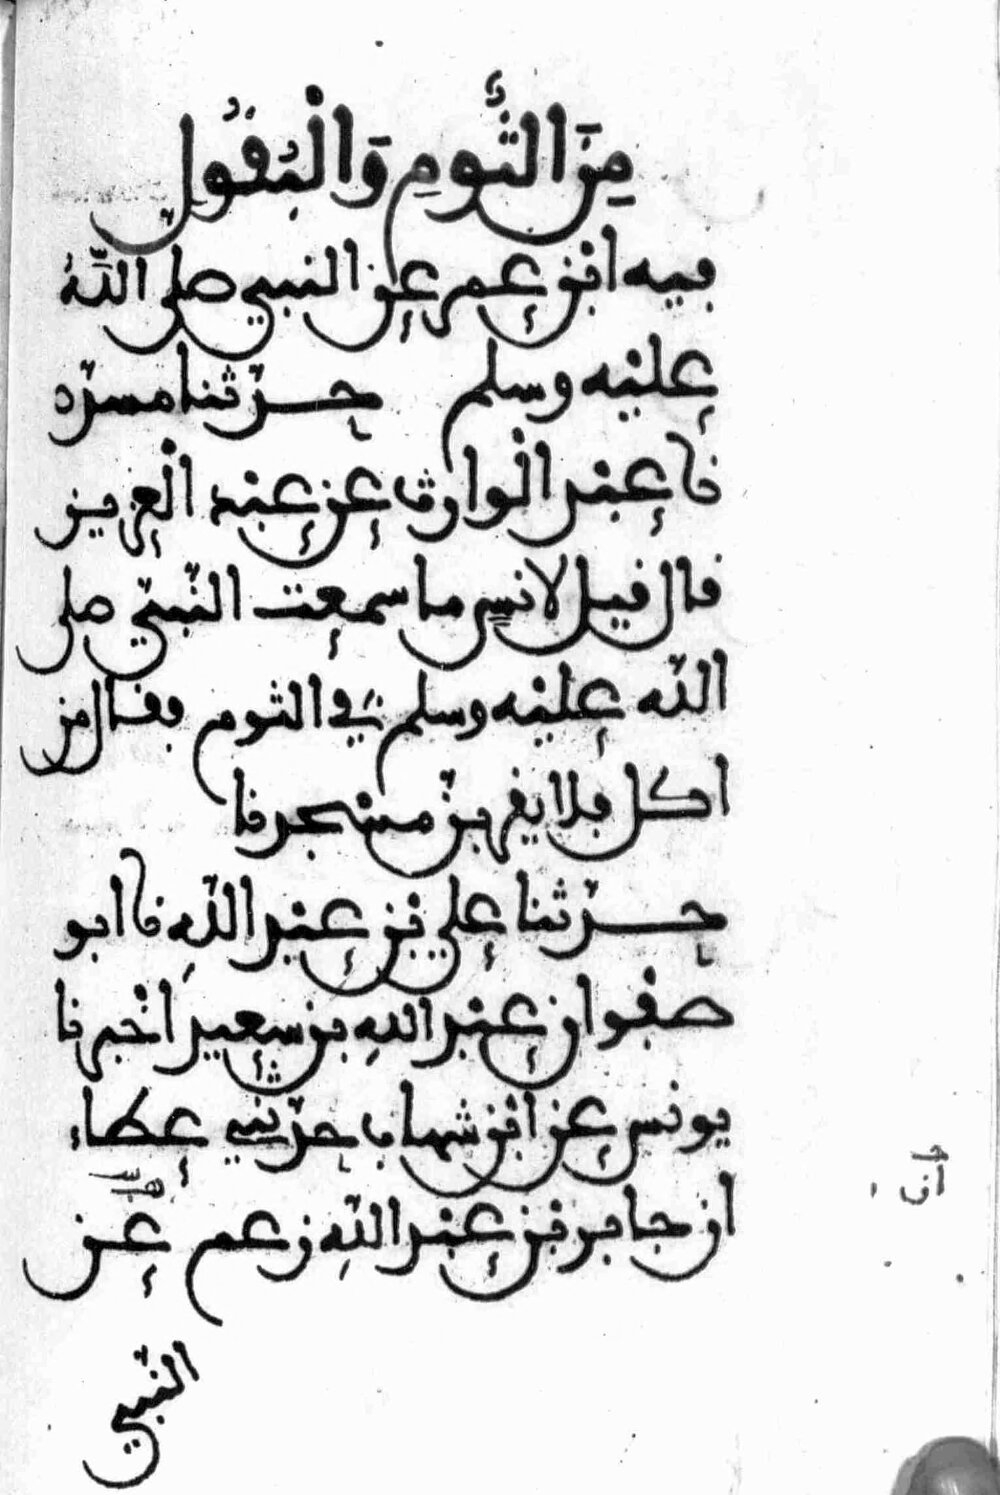 مِنَ الثُّومِ وَالْبُقُولِ
فيه ابْن عمر عن النبي صلى اللَّهُ
عليْه وسلم حدّثنا مسدّد
نا عبْد الْوارث عن عبْد الْعزيز
قال قيل لانس ما سمعت النّبيّ صلى
اللّه عليْه وسلم في الثوم فقال من
اكل فلا يقربنّ مسْجدنا
حدّثنا علي بْن عبْد اللّهِ نا ابو
صفْوان عبْد اللهِ بن سعيد اَخْبرنا
يونس عن ابْن شهاب حدّثني عطاء
ان جابر بْن عبْد اللّهِ زعم عن
النّبي